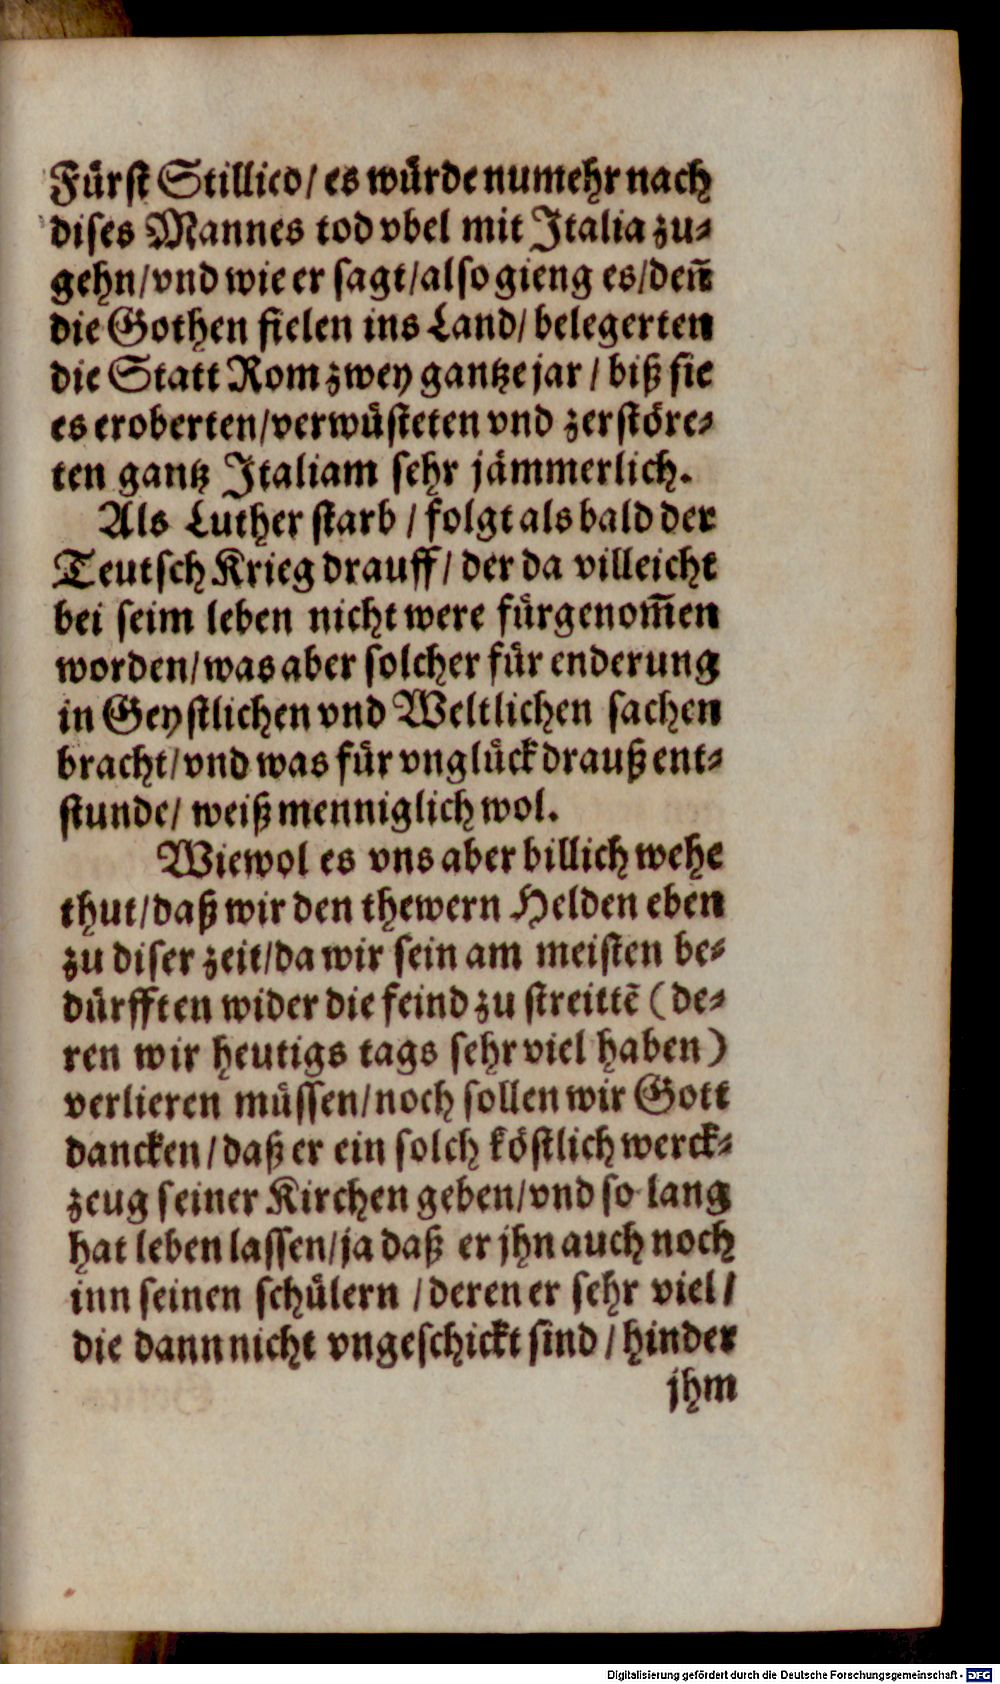 Fürst Stillico/ es würde numehr nach
dises Mannes tod vbel mit Italia zu⸗
gehn/ vnd wie er sagt/ also gieng es/ deñ
die Gothen fielen ins Land/ belegerten
die Statt Rom zwey gantze jar / biß sie
es eroberten/ verwüsteten vnd zerstöre⸗
ten gantz Italiam sehr jämmerlich.
Als Luther starb / folgt als bald der
Teutsch Krieg drauff/ der da villeicht
bei seim leben nicht were fürgenom̃en
worden/ was aber solcher für enderung
in Geystlichen vnd Weltlichen sachen
bracht/ vnd was für vnglück drauß ent⸗
stunde/ weiß menniglich wol.
Wiewol es vns aber billich wehe
thut/ daß wir den thewern Helden eben
zu diser zeit/ da wir sein am meisten be⸗
dürfften wider die feind zu streittẽ (de⸗
ren wir heutigs tags sehr viel haben)
verlieren müssen/ noch sollen wir Gott
dancken/ daß er ein solch köstlich werck⸗
zeug seiner Kirchen geben/ vnd so lang
hat leben lassen/ ja daß er jhn auch noch
inn seinen schülern / deren er sehr viel/
die dann nicht vngeschickt sind / hinder
jhm
Digitalisierung gefördert durch die Deutsche Forschungsgemeinschaft - DFG